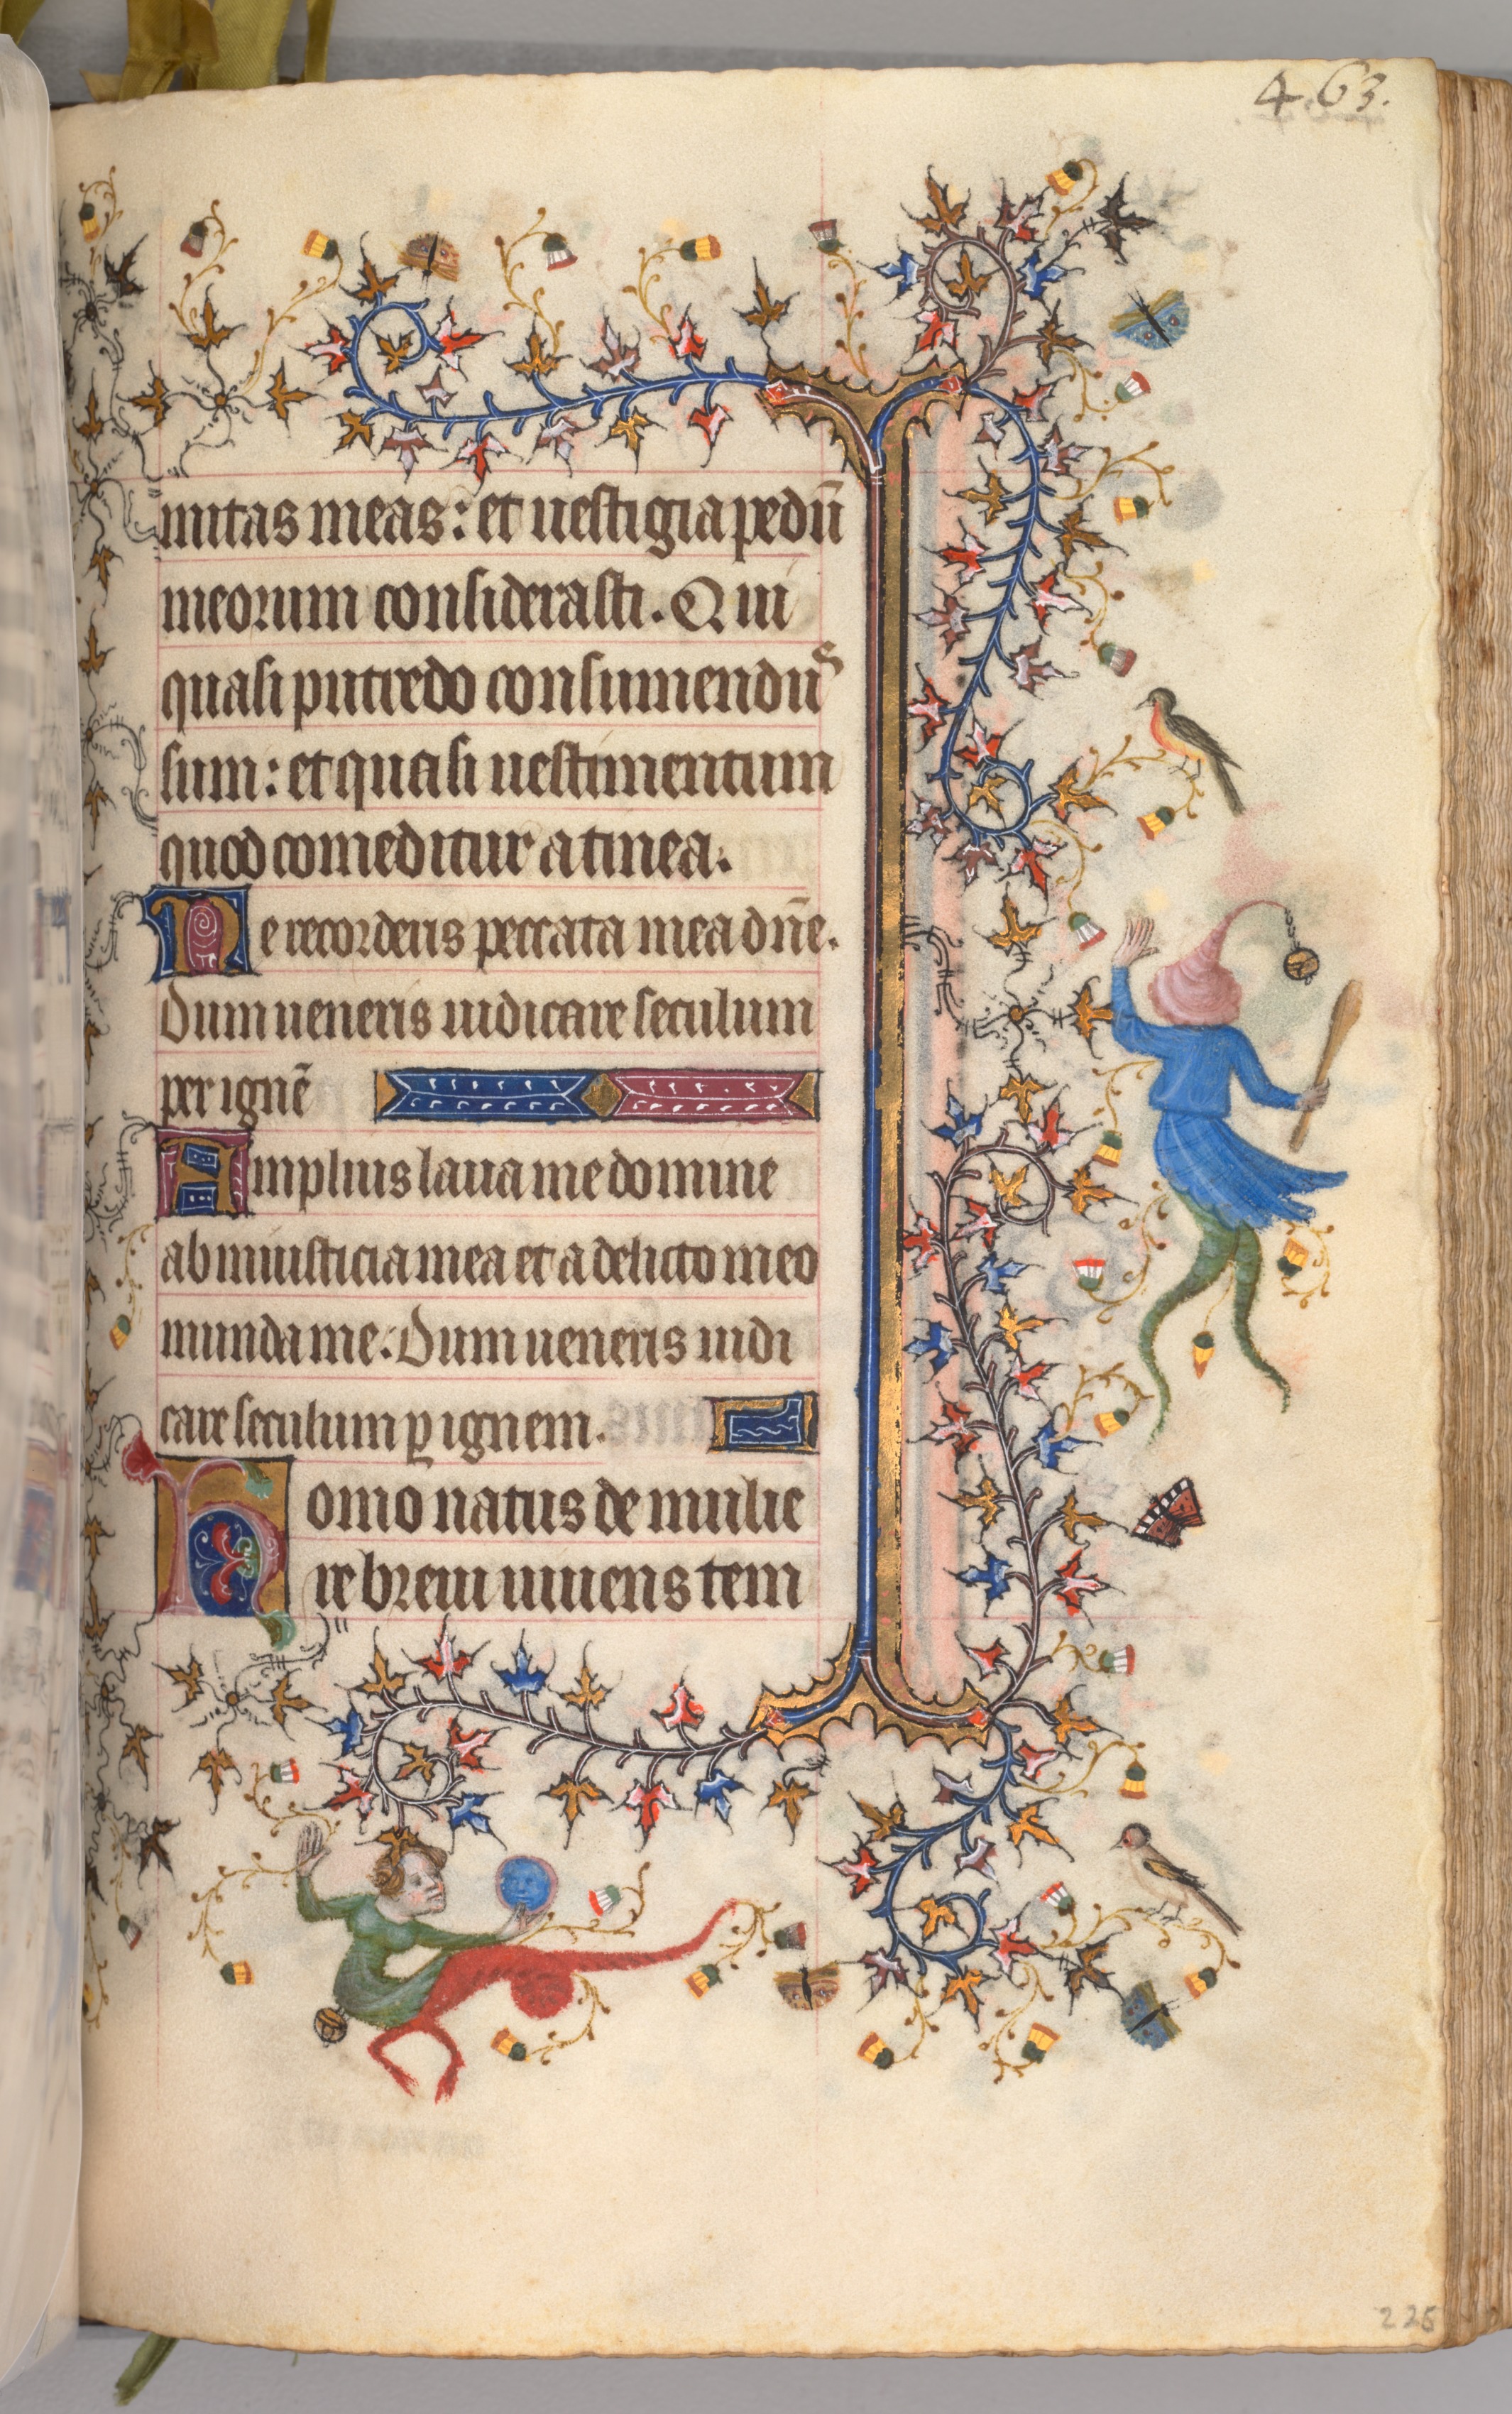 463.
mitas meas: et uestigia pedū
meorum considerasti. Qui
quasi putredo consumendus
sum: et quasi uestimentum
quod comeditur a tinea.
Ne recorderis peccata mea dñe.
Dum ueneris iudicare seculum
per ignē
Amplius laua me domine
ab iniusticia mea et a delicto meo
munda me. Dum ueneris iudi
care seculum ꝑ ignem.
Homo natus de mulie
re breui uiuens tem
225